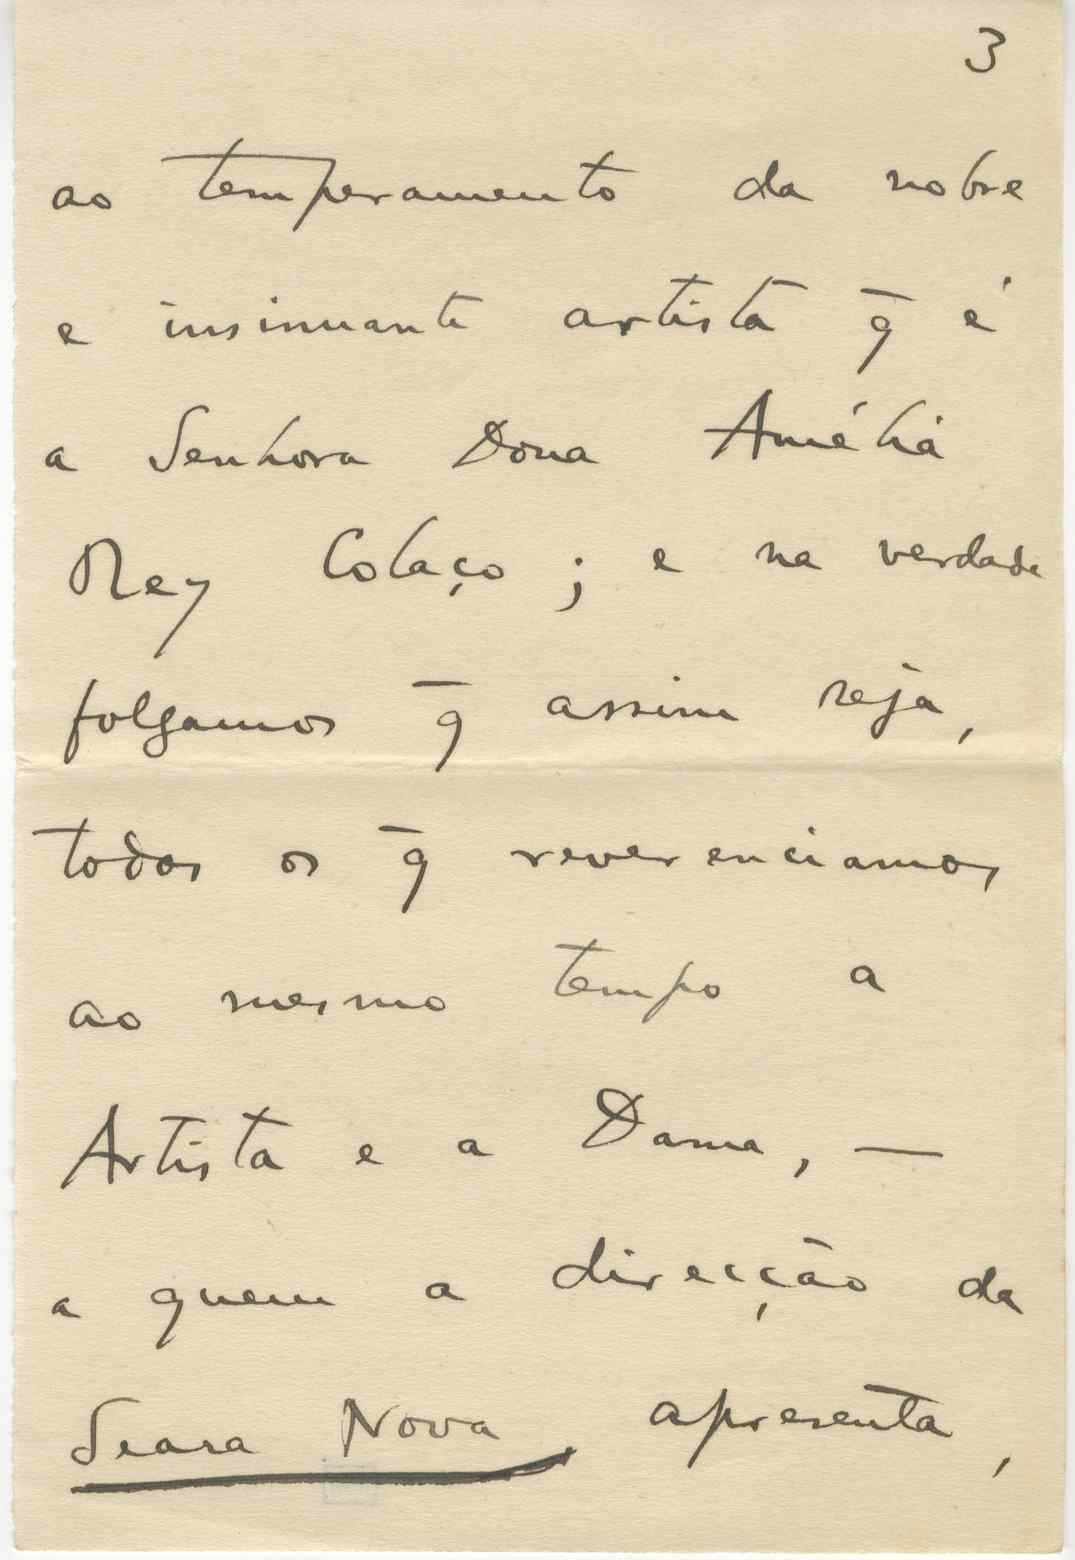 3
ao temperamento da nobre
e insinuante artista q̄ é
a Senhora Dona Amélia
Rey Colaço; e na verdade
folgamos q̄ assim seja,
todos os q̄ reverenciamos
ao mesmo tempo a
Artista e a Dama, —
a quem a direcção da
Seara Nova apresenta,